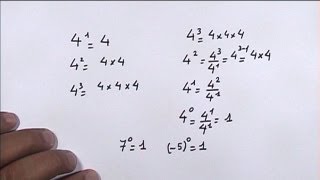 4¹ = 4
4² = 4 × 4
4³ = 4 × 4 × 4
4³ = 4 × 4 × 4
4² = 4³/4¹ = 4³⁻¹ = 4 × 4
4¹ = 4²/4¹
4⁰ = 4¹/4¹ = 1
7⁰ = 1 (-5)⁰ = 1